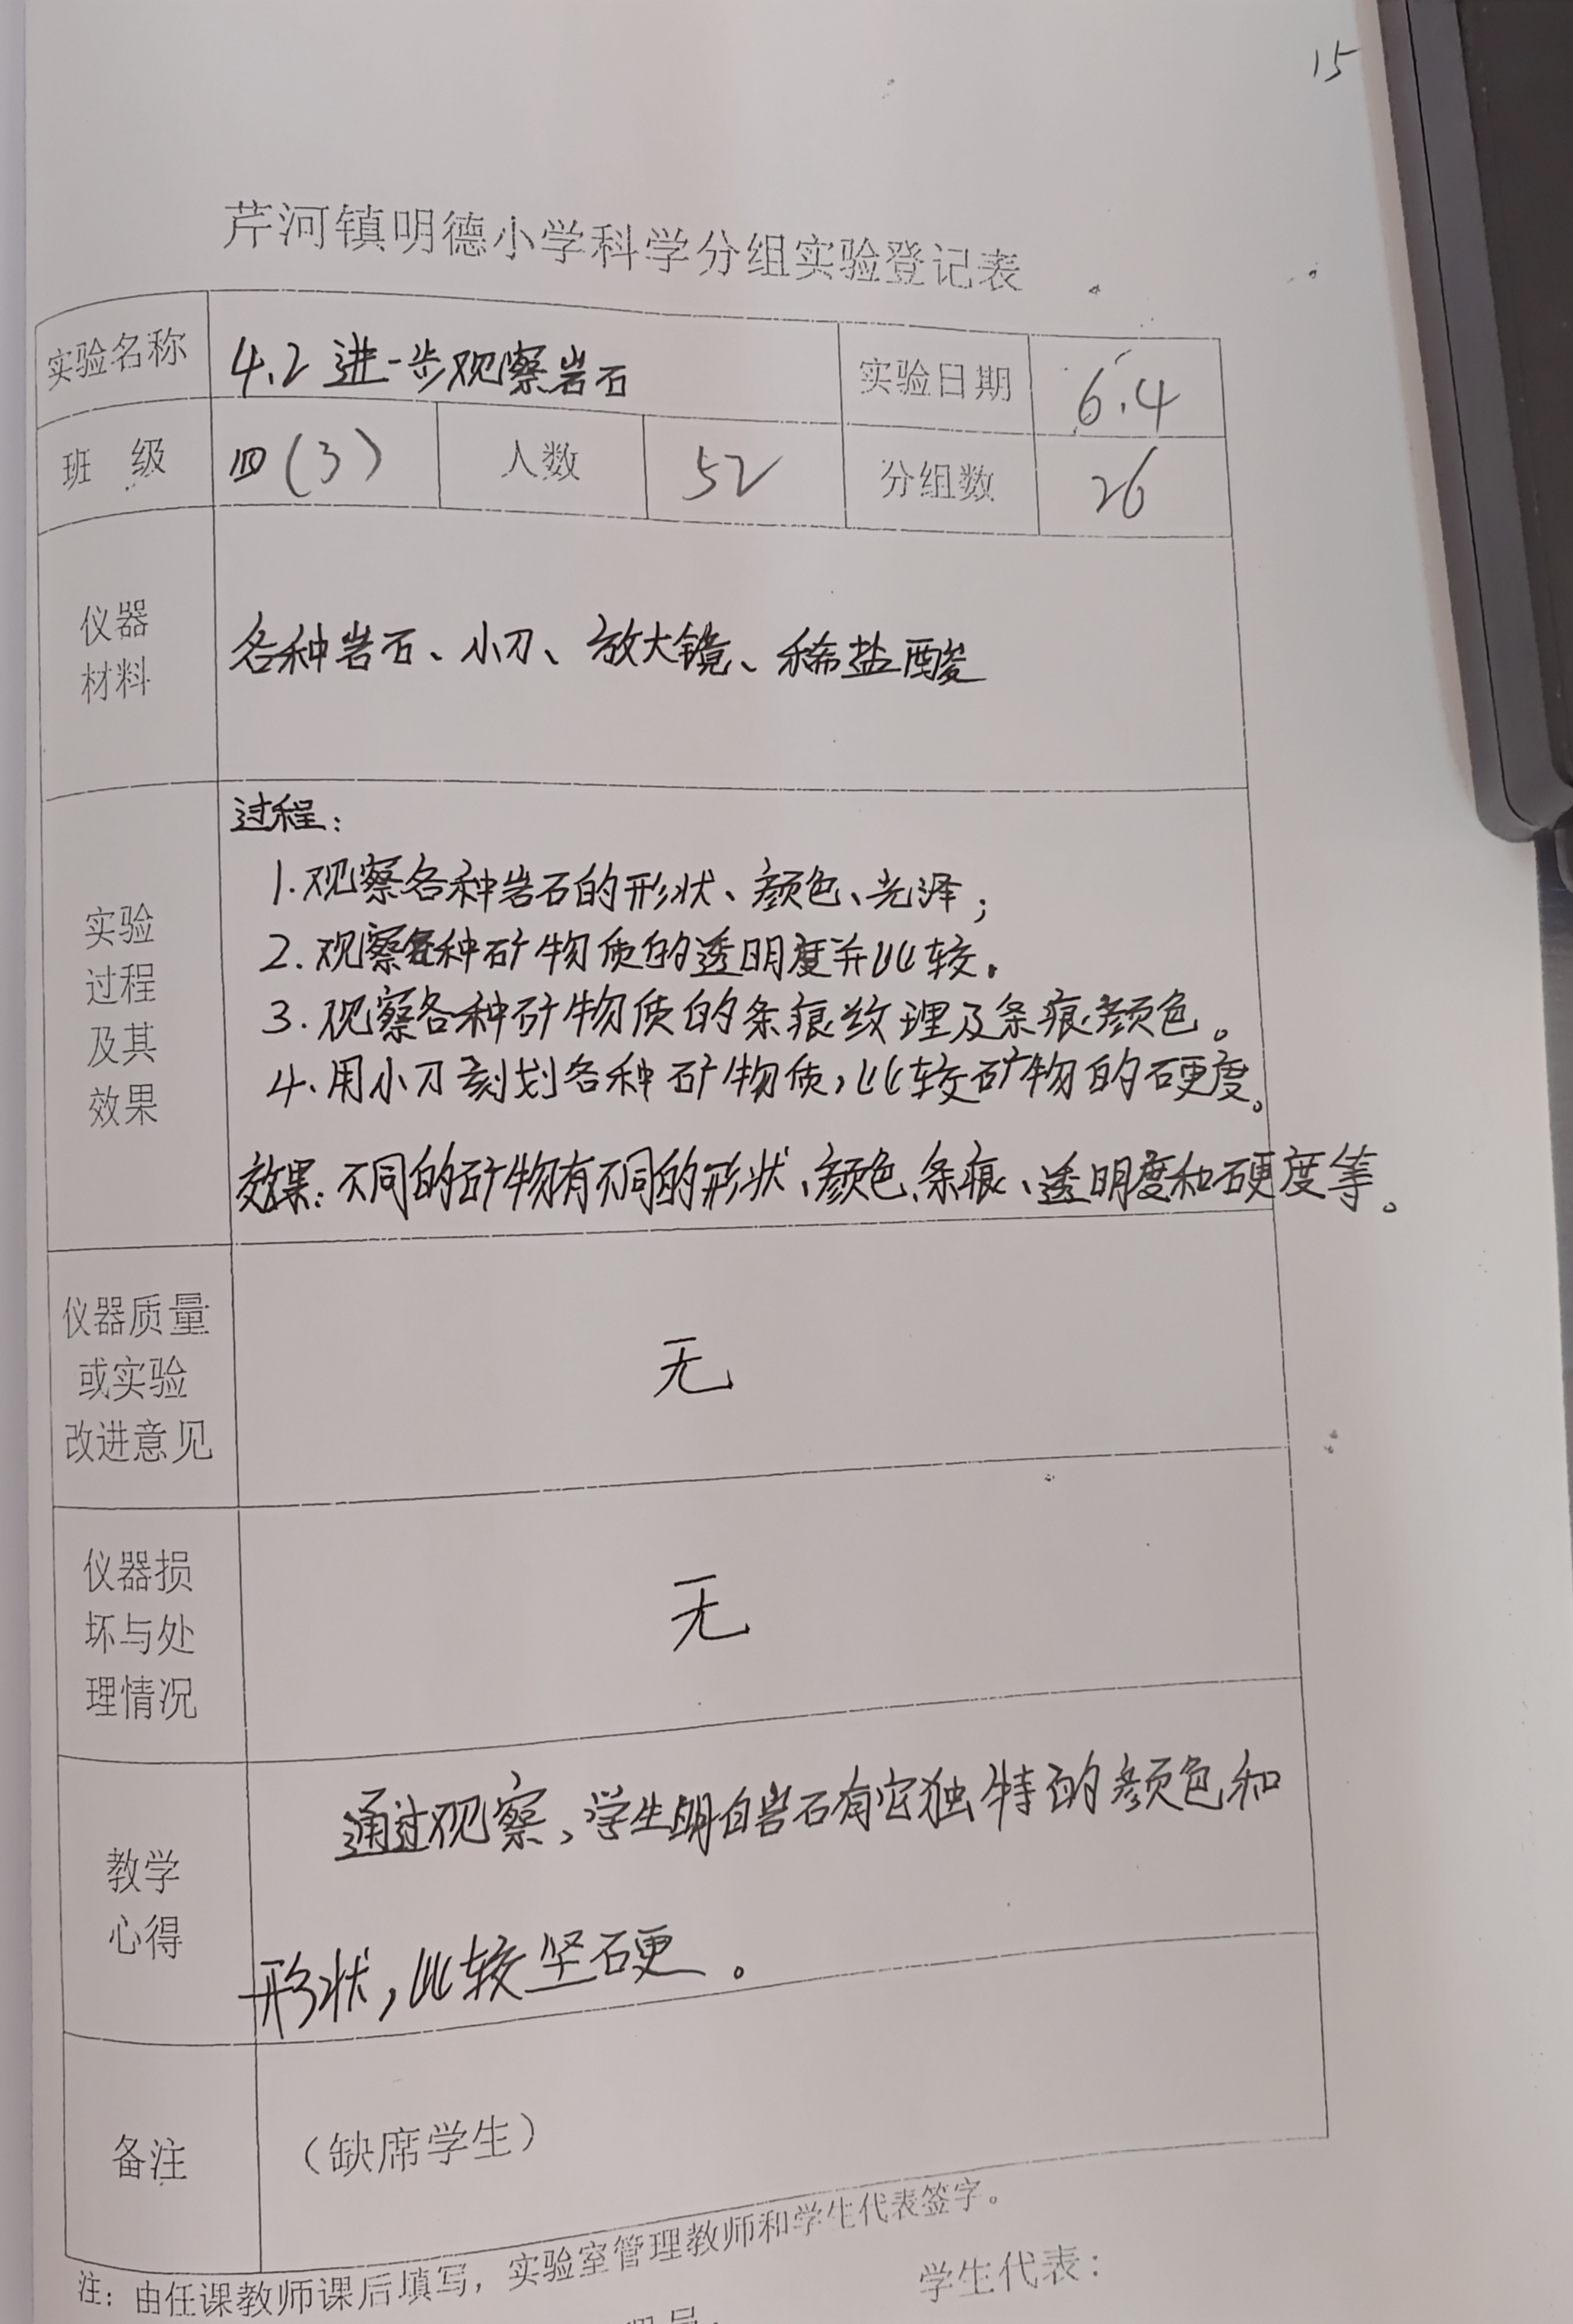 15
芹河镇明德小学科学分组实验登记表
实验名称 4.2 进一步观察岩石 实验日期 6.4
班 级 四(3) 人数 52 分组数 26
仪器
材料
各种岩石、小刀、放大镜、稀盐酸
实验
过程
及其
效果
过程:
1.观察各种岩石的形状、颜色、光泽;
2.观察各种矿物质的透明度并比较。
3.观察各种矿物质的条痕纹理及条痕颜色。
4.用小刀刻划各种矿物质,比较矿物的硬度。
效果:不同的矿物有不同的形状、颜色、条痕、透明度和硬度等。
仪器质量
或实验
改进意见
无
仪器损
坏与处
理情况
无
教学
心得
通过观察,学生明白岩石有它独特的颜色和
形状,比较坚硬。
备注 (缺席学生)
注:由任课教师课后填写,实验室管理教师和学生代表签字。
学生代表: